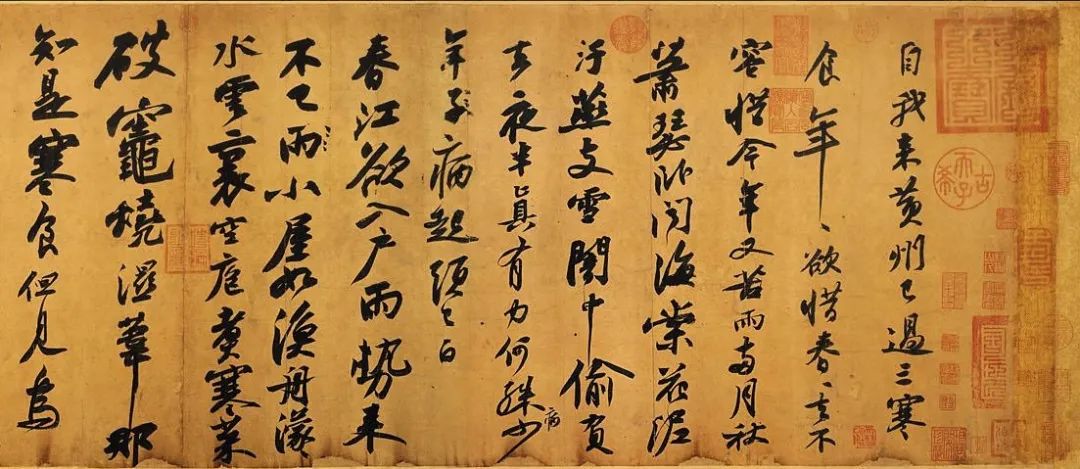 自我来黄州已過三寒
食年〻欲惜春〻去不
容惜今年又苦雨兩月秋
蕭瑟卧聞海棠花泥
汙燕支雪闇中偷負
去夜半真有力何殊少
病
年子病起頭已白
春江欲入户雨勢来
不已雨小屋如漁舟濛〻
水雲裏空庖煑寒菜
破竈燒濕葦那
知是寒食但見烏
古希天子